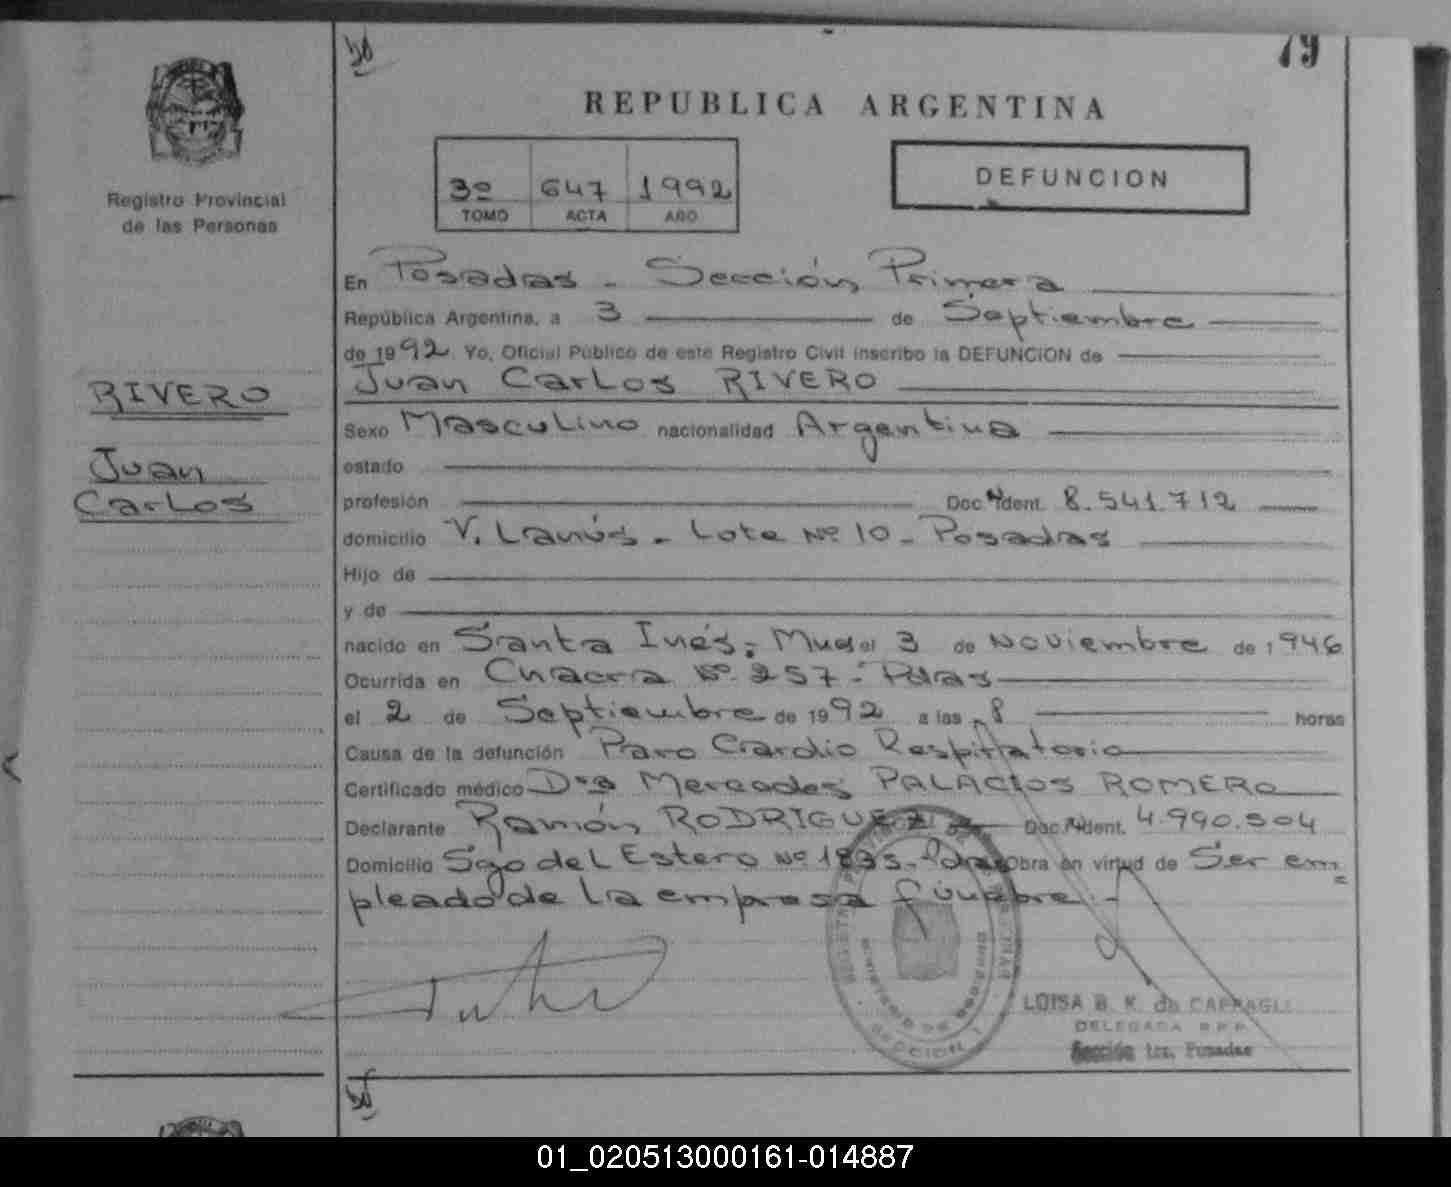 79
REPUBLICA ARGENTINA
Registro Provincial
de las Personas
3º 647 1992
TOMO ACTA AÑO
DEFUNCION
En Posadas - Sección Primera
República Argentina, a 3 de Septiembre
de 1992. Yo, Oficial Público de este Registro Civil inscribo la DEFUNCION de
Juan Carlos RIVERO
RIVERO
Juan
Carlos
Sexo Masculino nacionalidad Argentina
estado
profesión Doc. Ident. 8.541.712
domicilio V. Lanús - Lote Nº 10 - Posadas
Hijo de
y de
nacido en Santa Inés, Mnes el 3 de Noviembre de 1946
Ocurrida en Chacra Nº 257 - Pdas
el 2 de Septiembre de 1992 a las 8 horas
Causa de la defunción Paro Cardio Respiratorio
Certificado médico Dra Mercedes PALACIOS ROMERO
Declarante Ramón RODRIGUEZ Doc. Ident. 4.990.504
Domicilio Sgo del Estero Nº 1835 - Pdas Obra en virtud de Ser em=
pleado de la empresa fúnebre.-
SECCION 1
LUISA B. K. de
DELEGADA R.P.P.
Sección 1ra. Posadas
01_020513000161-014887